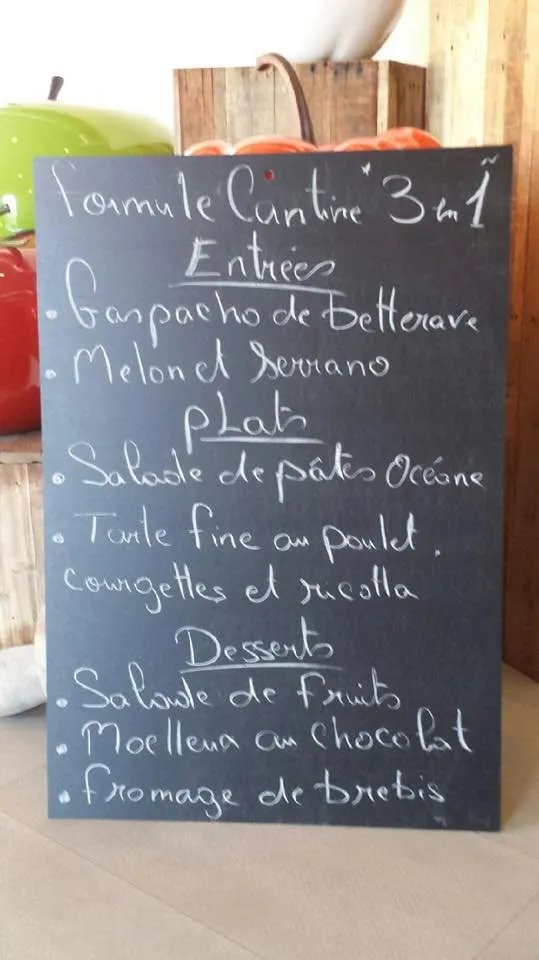 Formule Cantine "3 en 1"
Entrées
• Gaspacho de betterave
• Melon et Serrano
pLats
• Salade de pâtes Océane
• Tarte fine au poulet,
courgettes et ricotta
Desserts
• Salade de fruits
• Moelleux au chocolat
• fromage de brebis